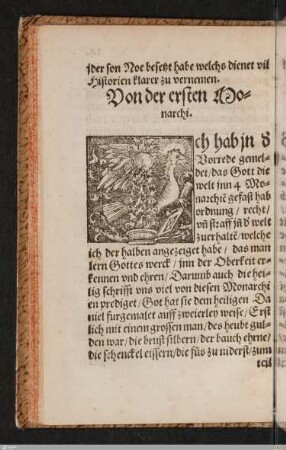 jder son Noe besetzt habe welchs dienet vil
Historien klarer zu vernemen.
Von der ersten Mo-
narchi.
Ich hab jn d
Vorrede gemel-
det/das Gott die
welt inn 4 Mo-
narchi gefast hab
ordnung/recht/
vñ straff jñ d welt
zuerhaltẽ/welche
ich der halben angezeiget habe/das man
lern Gottes werck/inn der Oberkeit er-
kennen vnd ehren/Darumb auch die hei-
lig schrifft vns viel von diesen Monarchi
en prediget/Got hat sie dem heiligen Da
niel furgemalet auff zweierley weise/Erst
lich mit einem grossen man/des heubt gul-
den war/die brust silbern/der bauch ehrne/
die schenckel eissern/die füs zu niderst/zum
teil